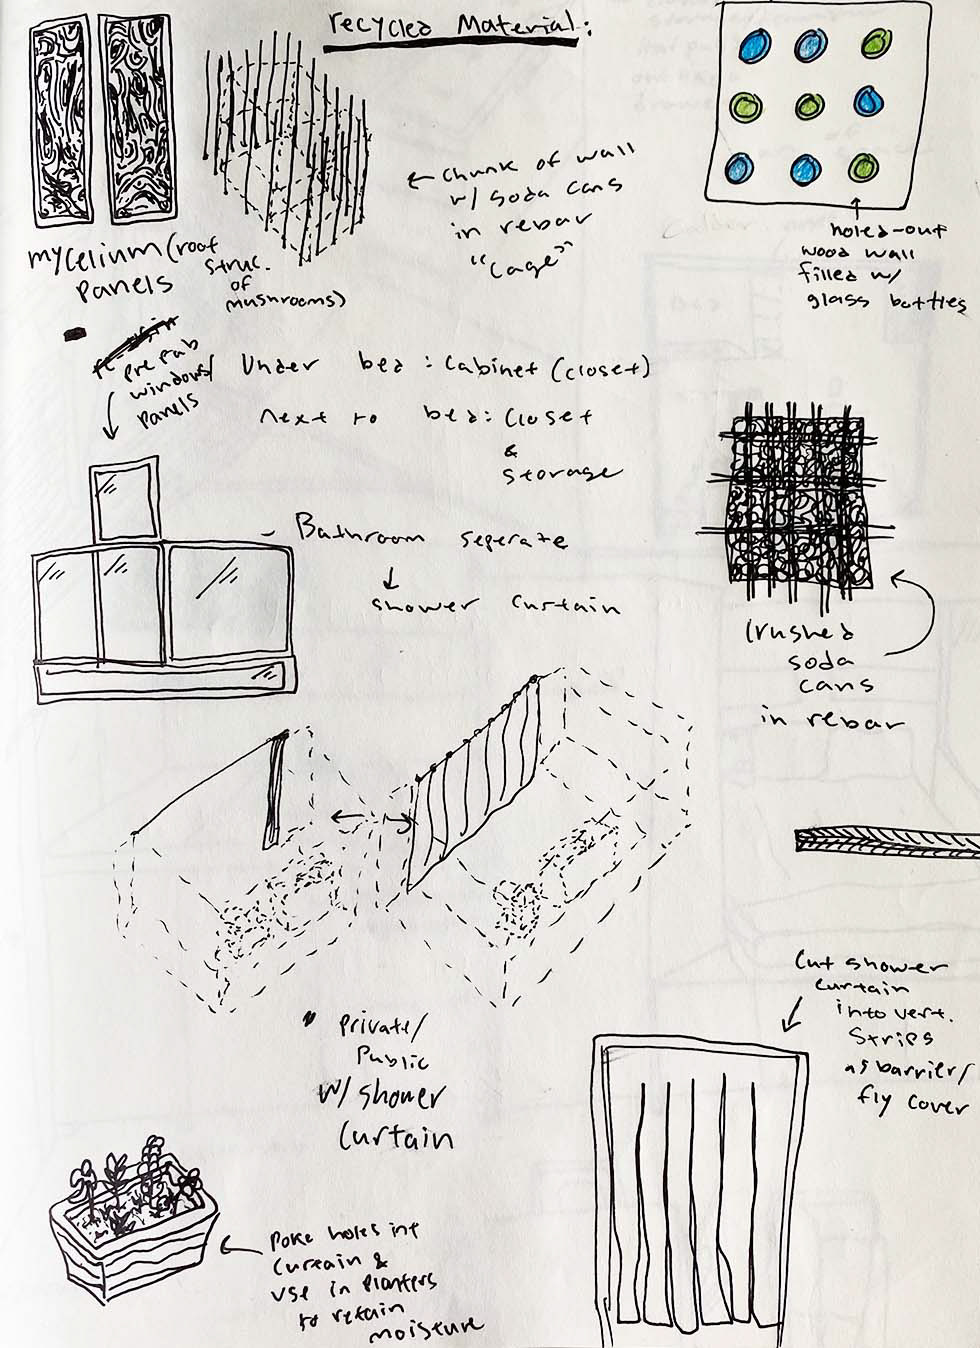 recycled Material:
mycelium (root
struc.
of
mushrooms)
Panels
← Chunk of wall
w/ soda cans
in rebar
"cage"
holed-out
wood wall
filled w/
glass bottles
prefab
windows/
panels
Under bed: Cabinet (closet)
next to bed: Closet
&
storage
- Bathroom seperate
shower curtain
Crushed
soda
cans
in rebar
Private/
Public
w/ shower
Curtain
Cut shower
curtain
into vert.
Strips
as barrier/
fly cover
Poke holes int
Curtain &
use in planters
to retain
moisture